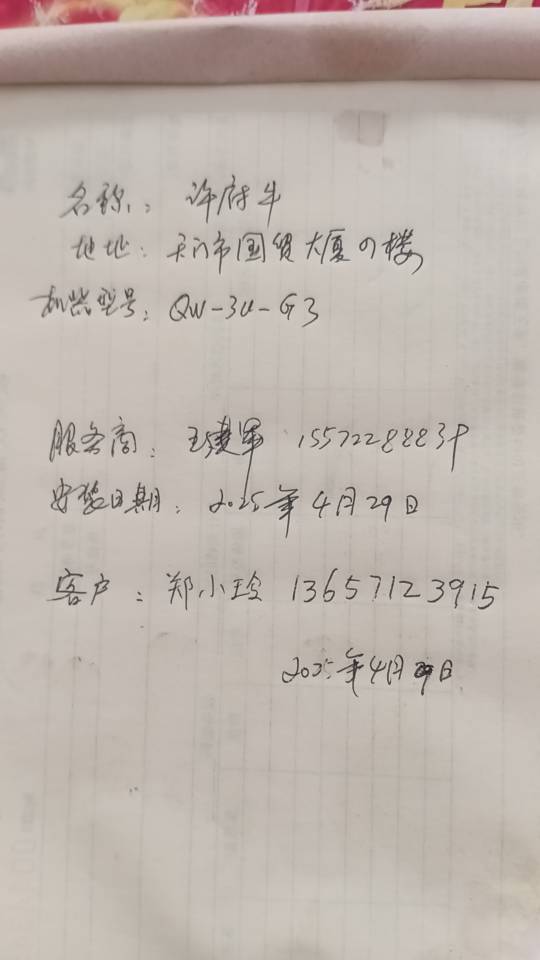 名称: 许府牛
地址: 天门市国贸大厦 楼
机器型号: QW-3U-G3
服务商: 王建军 15572288839
安装日期: 2025年4月29日
客户: 郑小玲 13657123915
2025年4月29日